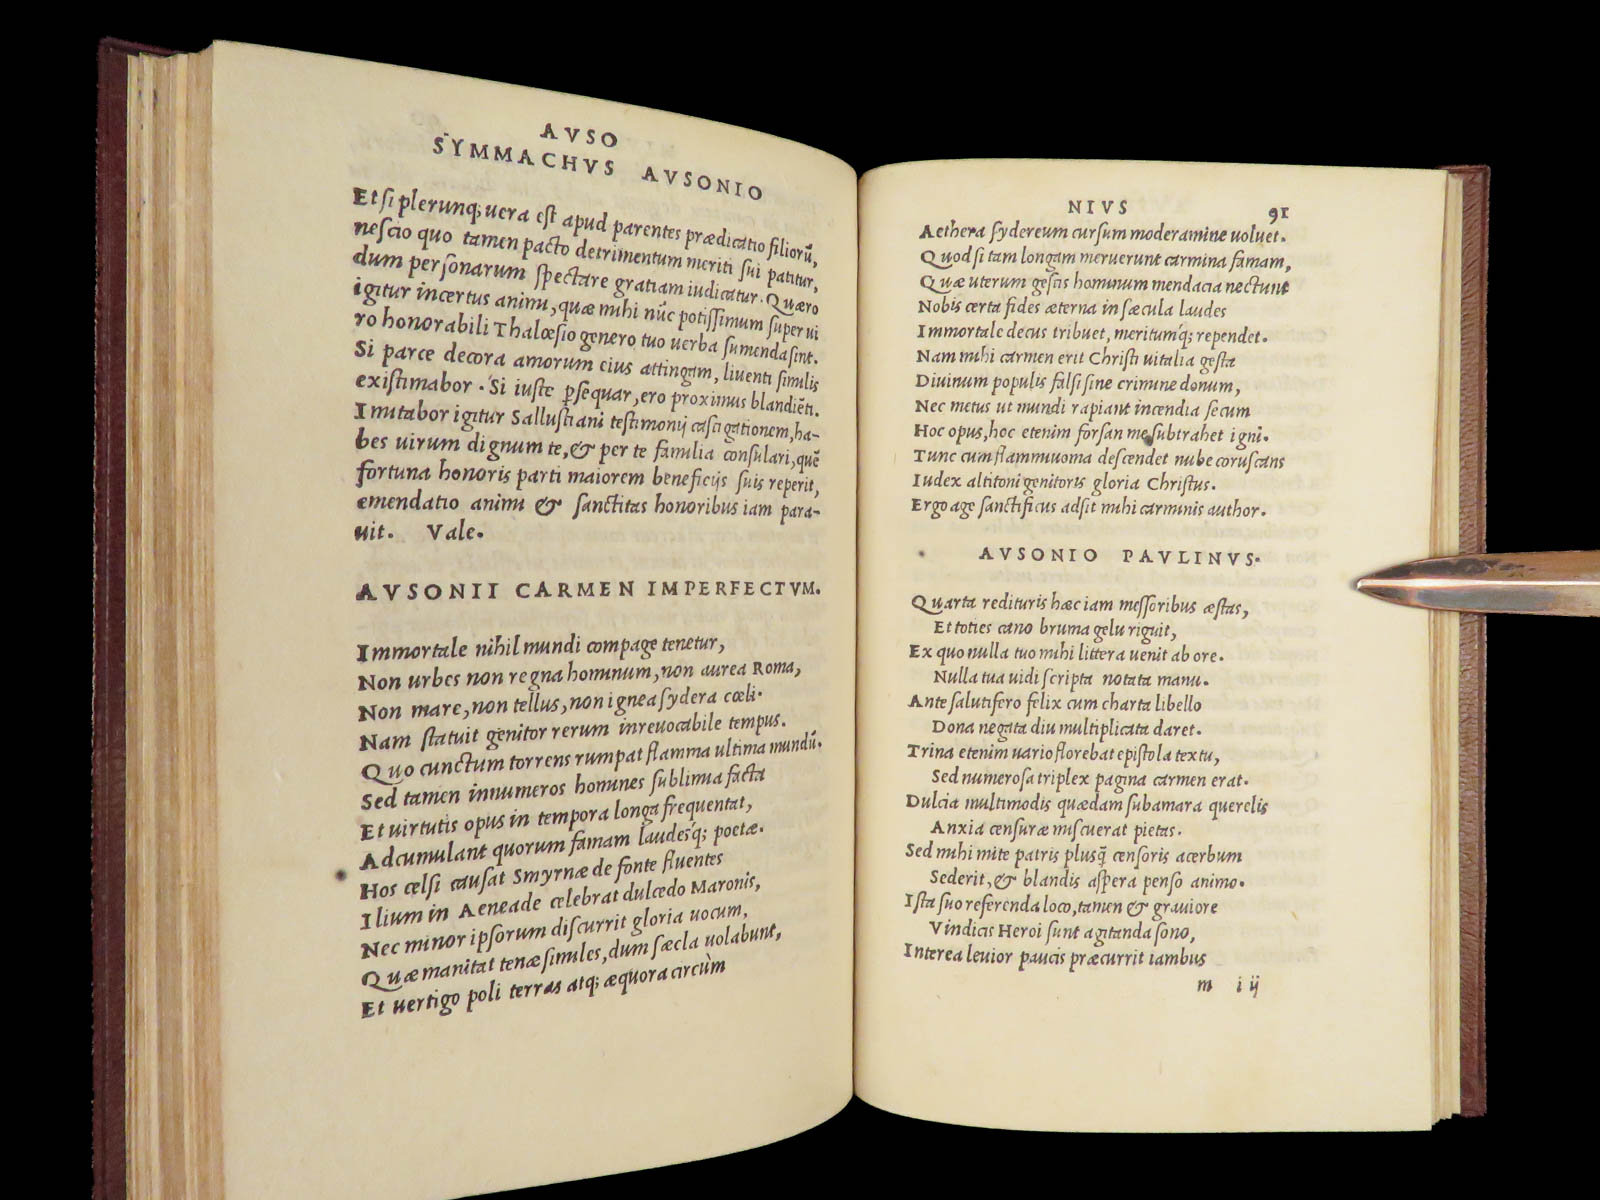 AVSO
SYMMACHVS AVSONIO
Etsi plerunq; uera est apud parentes prædicatio filiorũ,
nescio quo tamen pacto detrimentum meriti sui patitur,
dum personarum spectare gratiam iudicatur. Quæro
igitur incertus animi, quæ mihi nũc potissimum super ui
ro honorabili Thalœsio genero tuo uerba sumenda sint.
Si parce decora amorum eius attingam, liuenti similis
existimabor. Si iuste ꝑsequar, ero proximus blandiẽti.
Imitabor igitur Sallustiani testimonij castigationem, ha-
bes uirum dignum te, & per te familia consulari, quẽ
fortuna honoris parti maiorem beneficijs suis reperit,
æmendatio animi & sanctitas honoribus iam para-
uit. Vale.
AVSONII CARMEN IMPERFECTVM.
Immortale nihil mundi compage tenetur,
Non urbes non regna hominum, non aurea Roma,
Non mare, non tellus, non ignea sydera cœli.
Nam statuit genitor rerum inreuocabile tempus.
Quo cunctum torrens rumpat flamma ultima mundũ.
Sed tamen innumeros homines sublimia facta
Et uirtutis opus in tempora longa frequentat,
Adcumulant quorum famam laudesq́; poetæ.
Hos celsi causat Smyrnæ de fonte fluentes
Ilium in Aeneade celebrat dulcedo Maronis,
Nec minor ipsorum discurrit gloria uocum,
Quæ manitat tenæ similes, dum sæcla uolabunt,
Et uertigo poli terras atq; æquora circùm
NIVS 91
Aethera sydereum cursum moderamine uoluet.
Quod si tam longam meruerunt carmina famam,
Quæ uterum gestis hominum mendacia nectunt
Nobis certa fides æterna in sæcula laudes
Immortale decus tribuet, meritumq́; rependet.
Nam mihi carmen erit Christi uitalia gesta
Diuinum populis falsi sine crimine donum,
Nec metus ut mundi rapiant incendia secum
Hoc opus, hoc etenim forsan me subtrahet igni.
Tunc cum flammiuoma descendet nube coruscans
Iudex altitoni genitoris gloria Christus.
Ergo age sanctificus adsit mihi carminis author.
AVSONIO PAVLINVS.
Quarta redituris hæc iam messoribus æstas,
Et toties cano bruma gelu riguit,
Ex quo nulla tuo mihi littera uenit ab ore.
Nulla tua uidi scripta notata manu.
Ante salutifero felix cum charta libello
Dona negata diu multiplicata daret.
Trina etenim uario florebat epistola textu,
Sed numerosa triplex pagina carmen erat.
Dulcia multimodis quædam subamara querelis
Anxia censuræ miscuerat pietas.
Sed mihi mite patris plusq̃ censoris acerbum
Sederit, & blandis aspera penso animo.
Ista suo referenda loco, tamen & grauiore
Vindicis Heroi sunt agitanda sono,
Interea leuior paucis præcurrit iambus
m iij